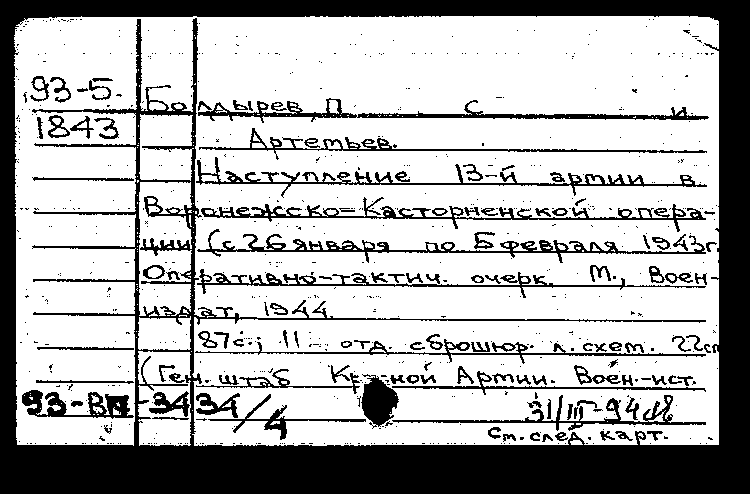 93-5. Болдырев, П С и
1843 Артемьев.
Наступление 13-й армии в
Воронежско-Касторненской опера-
ции (с 26 января по 5 февраля 1943г.
Оперативно-тактич. очерк. М., Воен-
издат, 1944.
87с.; 11 отд. сброшюр. л. схем. 22см
(Ген. штаб Красной Армии. Воен.-ист.
34/4 31/III-94
См. след. карт.